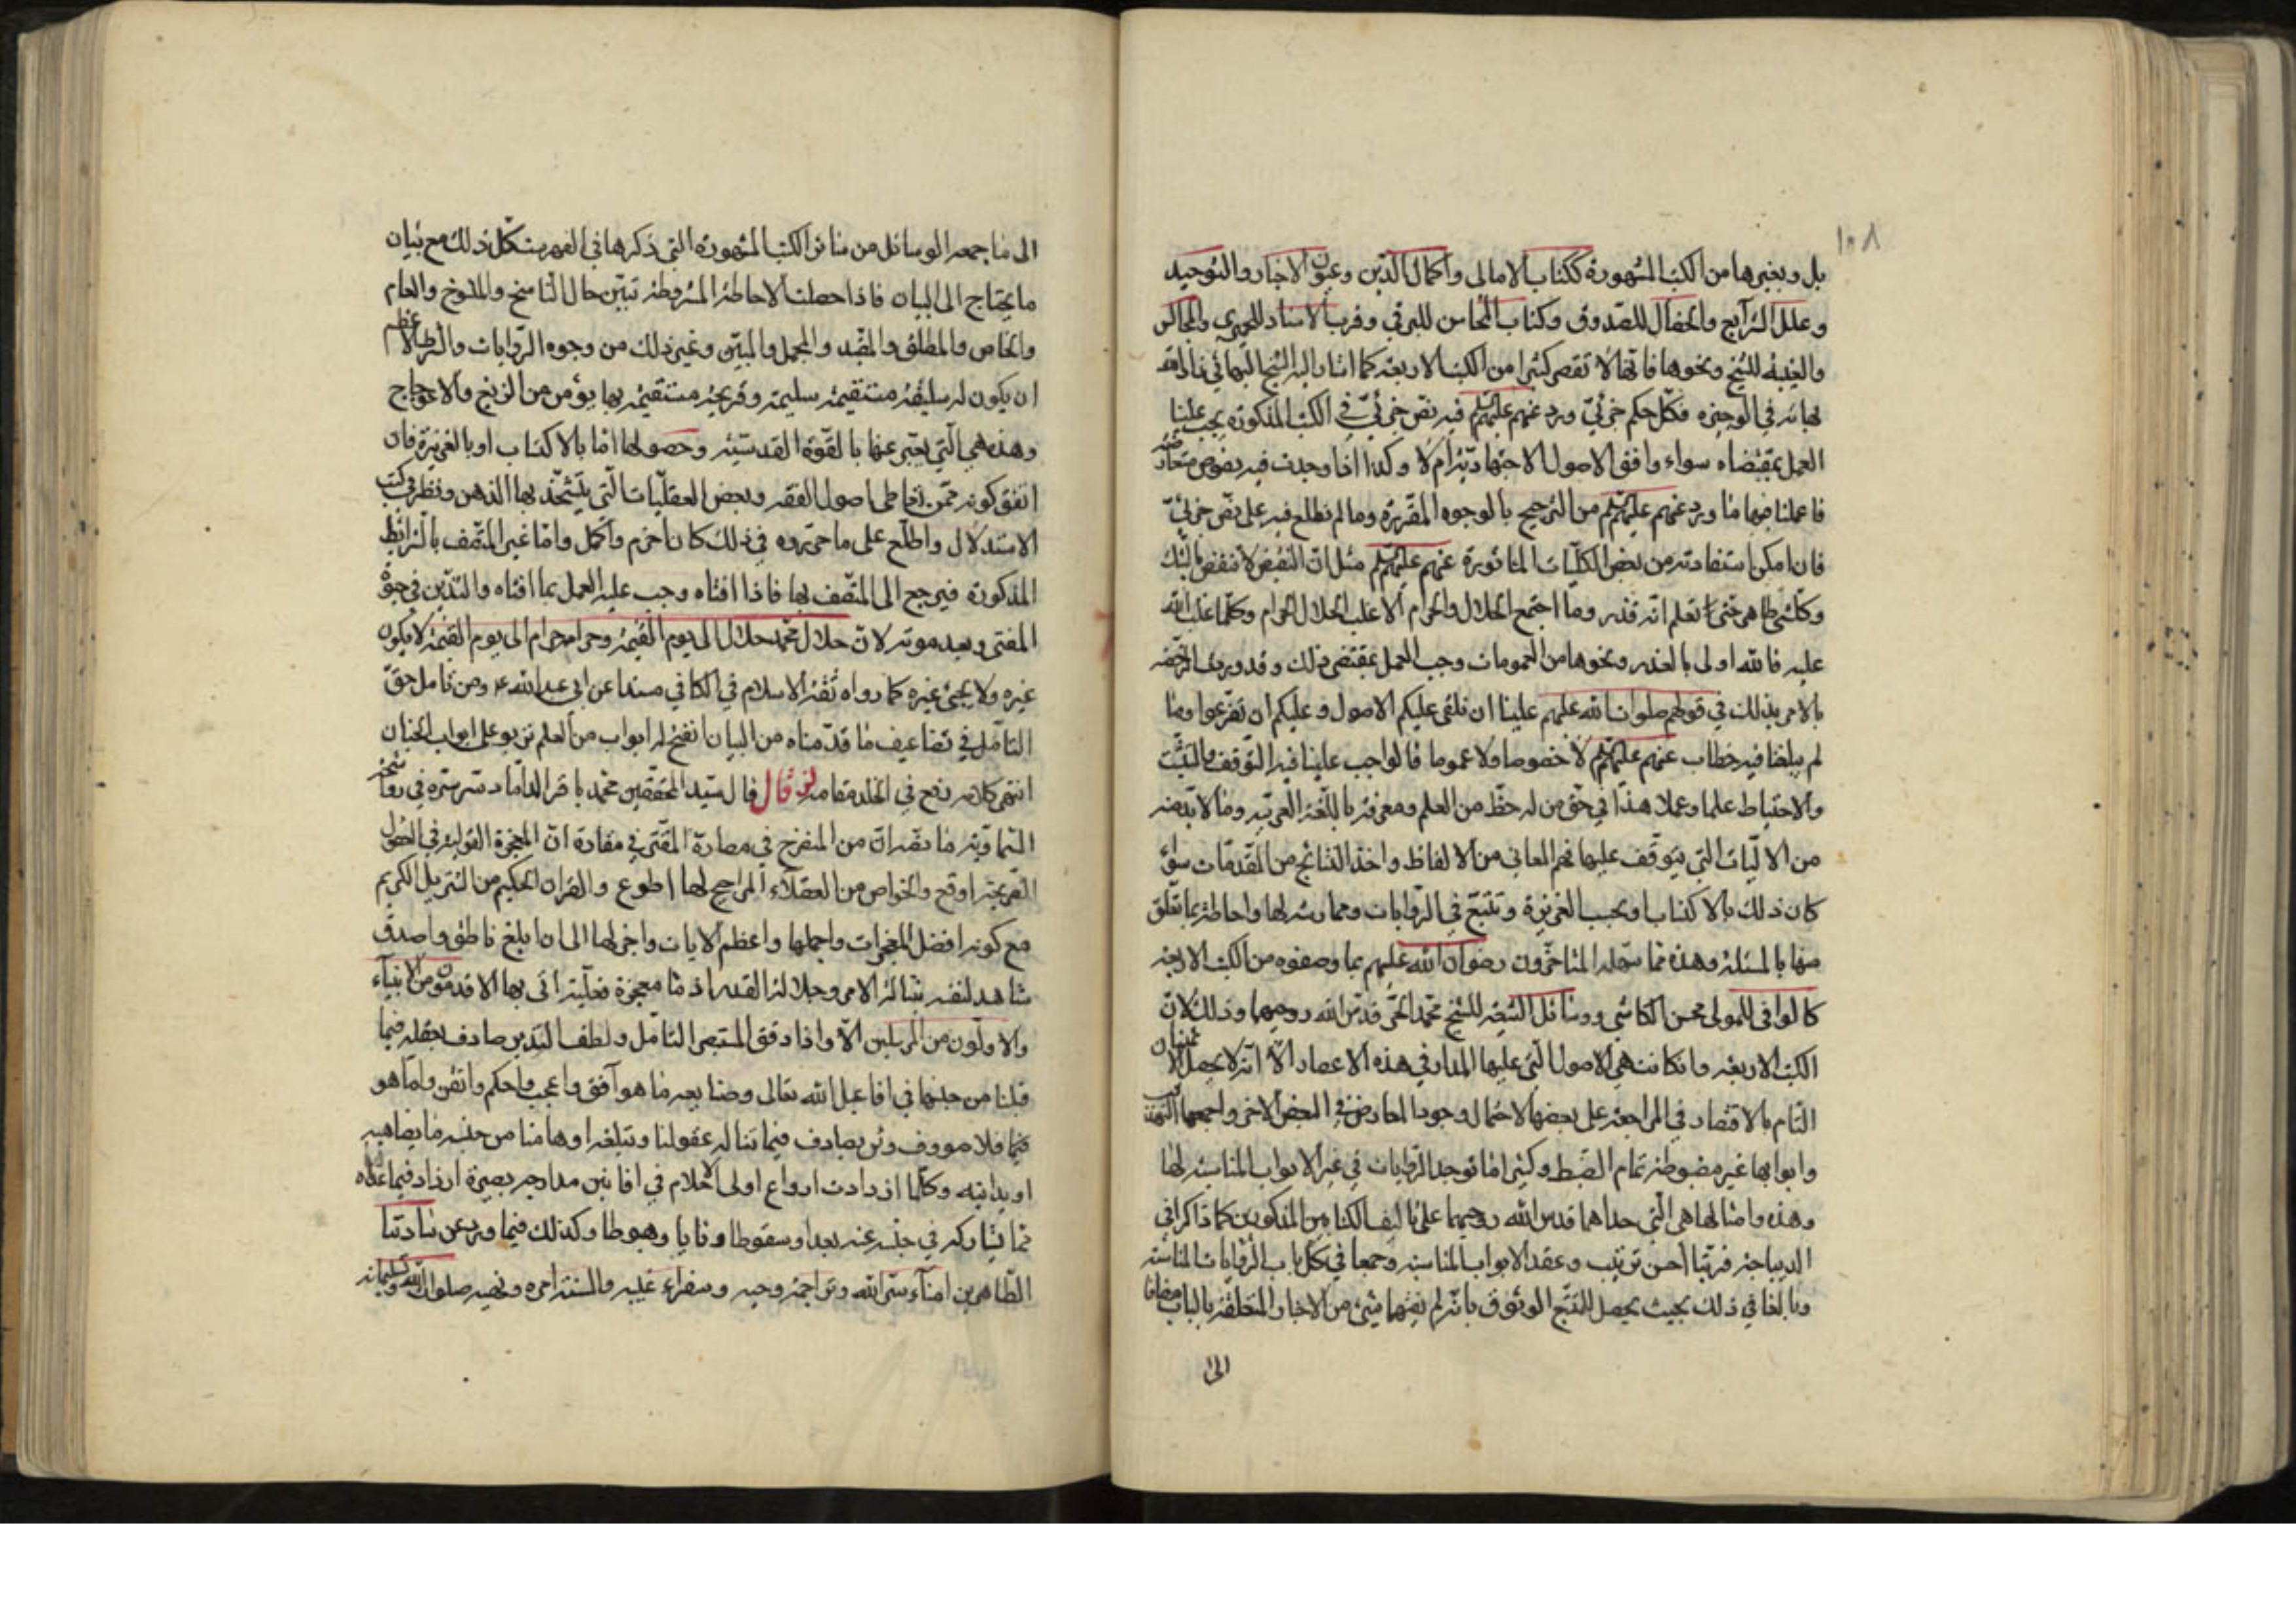 ١٠٨
بل وبغيرها من الكتب المشهورة ككتاب الامالى واكمال الدين وعيون الاخبار والتوحيد
وعلل الشرايع والخصال للصدوق وكتاب المحاسن للبرقى وقرب الاسناد للحميرى والمجالس
والغيبة للشيخ ونحوها فانها لا تقصر كثيرا من الكتب الاربعة كما اشار اليه الشيخ البهائى
فى الوجيزه فكل حكم جزئى ورد عنهم عليهم فيه نص جزئى فى الكتب المذكورة يجب علينا
العمل بمقتضاه سواء وافق الاصول الاجتهادية ام لا وكذا اذا وجدت فيه نصوص متعارضة
فاعملنا فيها ما ورد عنهم عليهم من الترجيح بالوجوه المقررة وما لم نطلع فيه على نص جزئى
فان امكن استفادته من بعض الكليات الماثورة عنهم عليهم مثل ان اليقين لا ينقض بالشك
وكل شئ طاهر حتى تعلم انه قذر وما اجتمع الحلال والحرام الا غلب الحلال الحرام وكلما غلب الله
عليه فالله اولى بالعذر ونحوها من العمومات وجب العمل بمقتضى ذلك وقد وردت الرخصة
بالامر بذلك فى قولهم صلوات الله عليهم علينا ان نلقى عليكم الاصول وعليكم ان تفرعوا وما
لم يبلغنا فيه خطاب عنهم عليهم لا خصوصا ولا عموما فالواجب علينا فيه التوقف والتثبت
والاحتياط علما وعملا هذا فى حق من له حظ من العلم ومعرفة باللغة العربية وما لا بد منه
من الاليات التى يتوقف عليها فهم المعانى من الالفاظ واخذ النتائج من المقدمات سواء
كان ذلك بالاكتساب او بحسب الغريزة وتتبع فى الروايات وممارسة لها واحاطة بما تعلق
منها بالمسئلة وهذه مما سهله المتاخرون رضوان الله عليهم بما وصفوه من الكتب الاربعة
كالوافى للمولى محسن الكاشى ووسائل الشيعة للشيخ محمد الحر قدس الله روحيهما وذلك لان
الكتب الاربعة وان كانت هى الاصول التى عليها المدار فى هذه الاعصار الا انه لا يحصل الاطمينان
التام بالاقتصار فى المراجعة على بعضها لاحتمال وجود المعارض فى البعض الاخر واجمعها التهذيب
وابوابها غير مضبوطة تمام الضبط وكثيرا ما توجد الروايات فى غير الابواب المناسبة لها
وهذه وامثالها هى التى حداهما قدس الله روحيهما على تاليف الكتابين المذكورين كما ذكرا فى
الديباجة فرتبا احسن ترتيب وعقد الابواب المناسبة وجمعا فى كل باب الروايات المناسبة
وبالغا فى ذلك بحيث يحصل للمتتبع الوثوق بانه لم يفتهما شئ من الاخبار المتعلقة بالباب مضافا
الى
الى ما جمعه الوسائل من سائر الكتب المشهورة التى ذكرها فى الفهرست كل ذلك مع بيان
ما يحتاج الى البيان فاذا حصلت الاحاطة المشروطة تبين حال الناسخ والمنسوخ والعام
والخاص والمطلق والمقيد والمجمل والمبين وغير ذلك من وجوه الروايات والشرط الاعظم
ان يكون له سليقة مستقيمة سليمة وقريحة مستقيمة بها يؤمن من الزيغ والاعوجاج
وهذه هى التى يعبر عنها بالقوة القدسية وحصولها اما بالاكتساب او بالغريزة فان
اتفق كونه ممن احاط باصول الفقه وبعض العقليات التى يتشحذ بها الذهن ونظر فى كتب
الاستدلال واطلع على ما حرروه فى ذلك كان احزم واكمل واما غير المتصف بالشرائط
المذكورة فيرجع الى المتصف بها فاذا افتاه وجب عليه العمل بما افتاه والتدين فى حيوة
المفتى وبعد موته لان حلال محمد حلال الى يوم القيمة وحرامه حرام الى يوم القيمة لا يكون
غيره ولا يجئ غيره كما رواه ثقة الاسلام فى الكافى مسندا عن ابى عبد الله ع ومن تامل حق
التامل فى تضاعيف ما قدمناه من البيان انفتح له ابواب من العلم تربو على ابواب الجنان
انتهى كلامه رفع فى الخلد مقامه ثم قال قال سيد المحققين محمد باقر الداماد سره فى رواشحه
السماوية ما نصه ان من المنصرح فى مقارة ان المعجزة القولية فى العقول
القريحة اوقع والخواص من العقلاء المراجح لها اطوع والقران الحكيم من التنزيل الكريم
مع كونه افضل المعجزات واجملها واعظم الايات واجزلها الى ان ابلغ ناطق واصدق
شاهد لنفسه بنبالة الامر وجلالة القدر اذ ما معجزة فعلية اتى بها الاقدمون من الانبياء
والاولون من المرسلين الا واذا دقق المستبصر التامل ولطف التدبر صادف بعقله فيما
قلنا من جنسها فى افاعيل الله تعالى وصنايعه ما هو آفق واعجب واحكم واتقن واما هو
فيها فلا مووف ولن يصادف فيما تناله عقولنا وتبلغه اوهامنا من جنسه ما يضاهيه
او يدانيه وكلما ازدادت ارواع اولى الاحلام فى افانين مدارجه بصيرة ازداد فيما عداه
مما يشاركه فى جنسه عنه بعدا وسقوطا ونايا وهبوطا وكذلك فيما ورد عن سادتنا
الطاهرين امناء سر الله وتراجمة وحيه وسفراء غيبه والسنة امره ونهيه صلوات الله وتسليماته